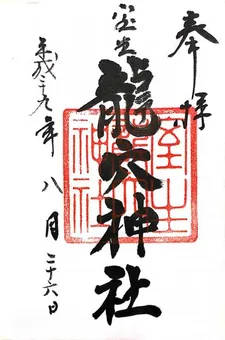 奉拝
室生
龍穴神社
平成二十九年八月二十六日
室生
龍穴
神社